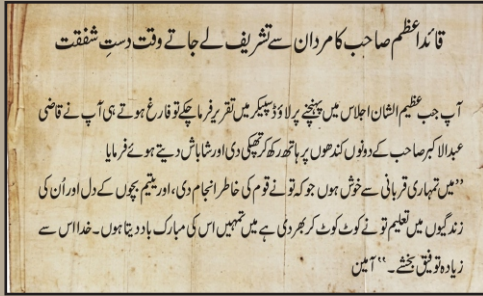 قائد اعظم صاحب کا مردان سے تشریف لے جاتے وقت دستِ شفقت
آپ جب عظیم الشان اجلاس میں پہنچنے پر لاؤڈ سپیکر میں تقریر فرما چکے تو فارغ ہوتے ہی آپ نے قاضی
عبدالاکبر صاحب کے دونوں کندھوں پر ہاتھ رکھ کر تھپکی دی اور شاباش دیتے ہوئے فرمایا
”میں تمہاری قربانی سے خوش ہوں جو کہ تو نے قوم کی خاطر انجام دی، اور یتیم بچوں کے دل اور اُن کی
زندگیوں میں تعلیم تو نے کوٹ کوٹ کر بھر دی ہے میں تمہیں اس کی مبارک باد دیتا ہوں۔ خدا اس سے
زیادہ توفیق بخشے۔“ آمین